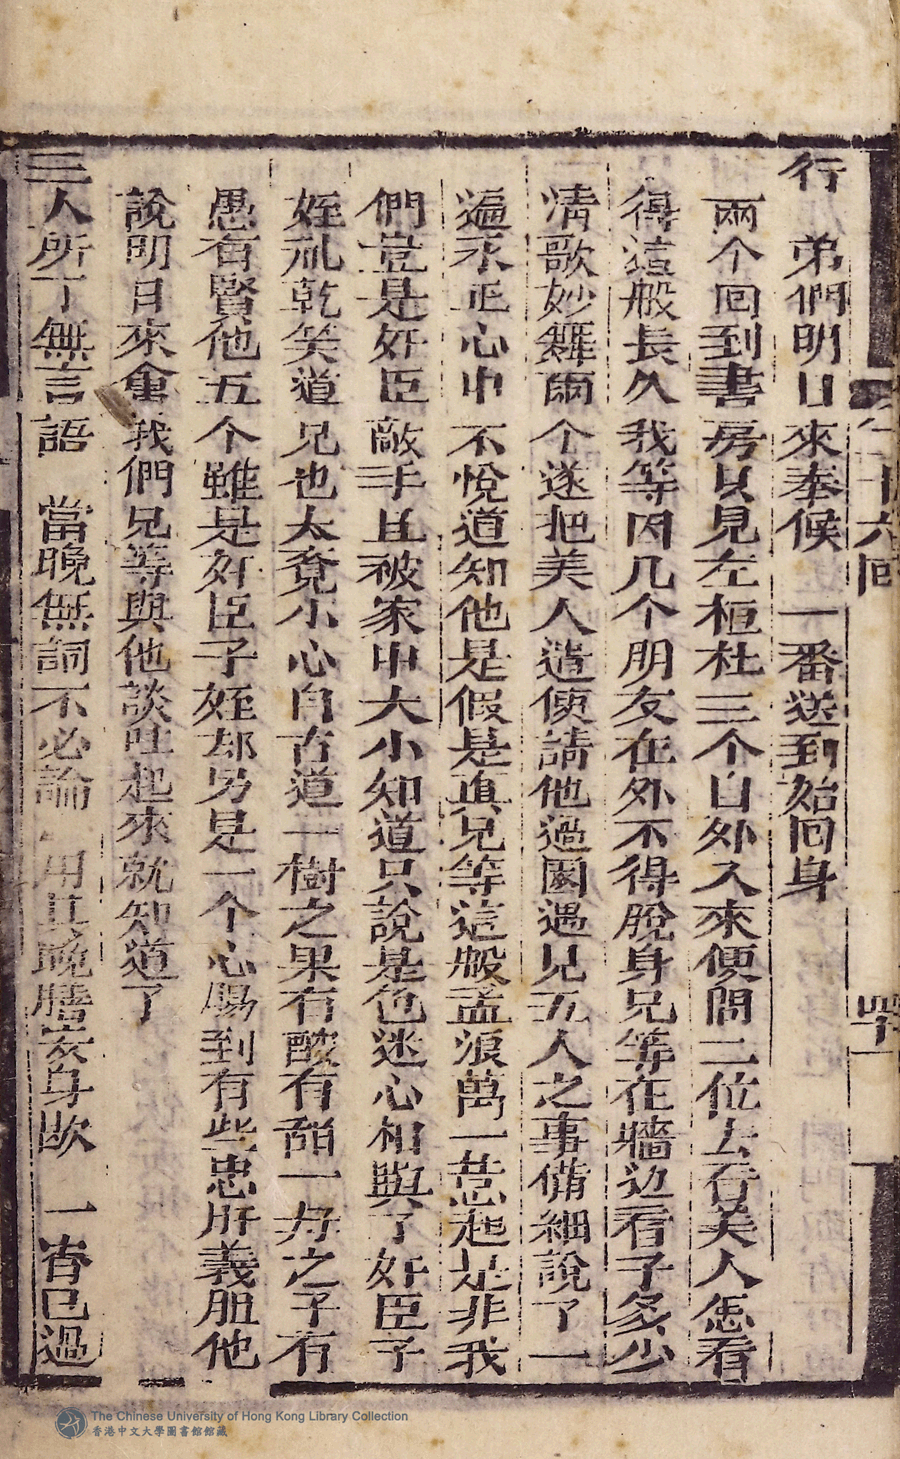 行　弟們明日來奉候　一番送到始回身
兩个回到書房只見左桓杜三个自外入來便問二位去看美人怎看
得這般長久我等因几个朋友在外不得脫身兄等在牆边看了多少
清歌妙舞兩个遂把美人遣使請他過園遇見五人之事備細說了一
遍禾正心中不悅道知他是假是真兄等這般孟浪萬一惹起是非我
們豈是奸臣敵手且被家中大小知道只說是色迷心相與了奸臣子
姪礼乾笑道兄也太覔小心自古道一樹之果有酸有甜一母之子有
愚有賢他五个雖是奸臣子姪却另是一个心腸到有些忠肝義胆他
說明日來會我們兄等與他談吐起來就知道了
三人所了無言語　當晚無詞不必論　用其晚膳安身歇　一宵已過
十六回
四十一
The Chinese University of Hong Kong Library Collection
香港中文大學圖書館館藏